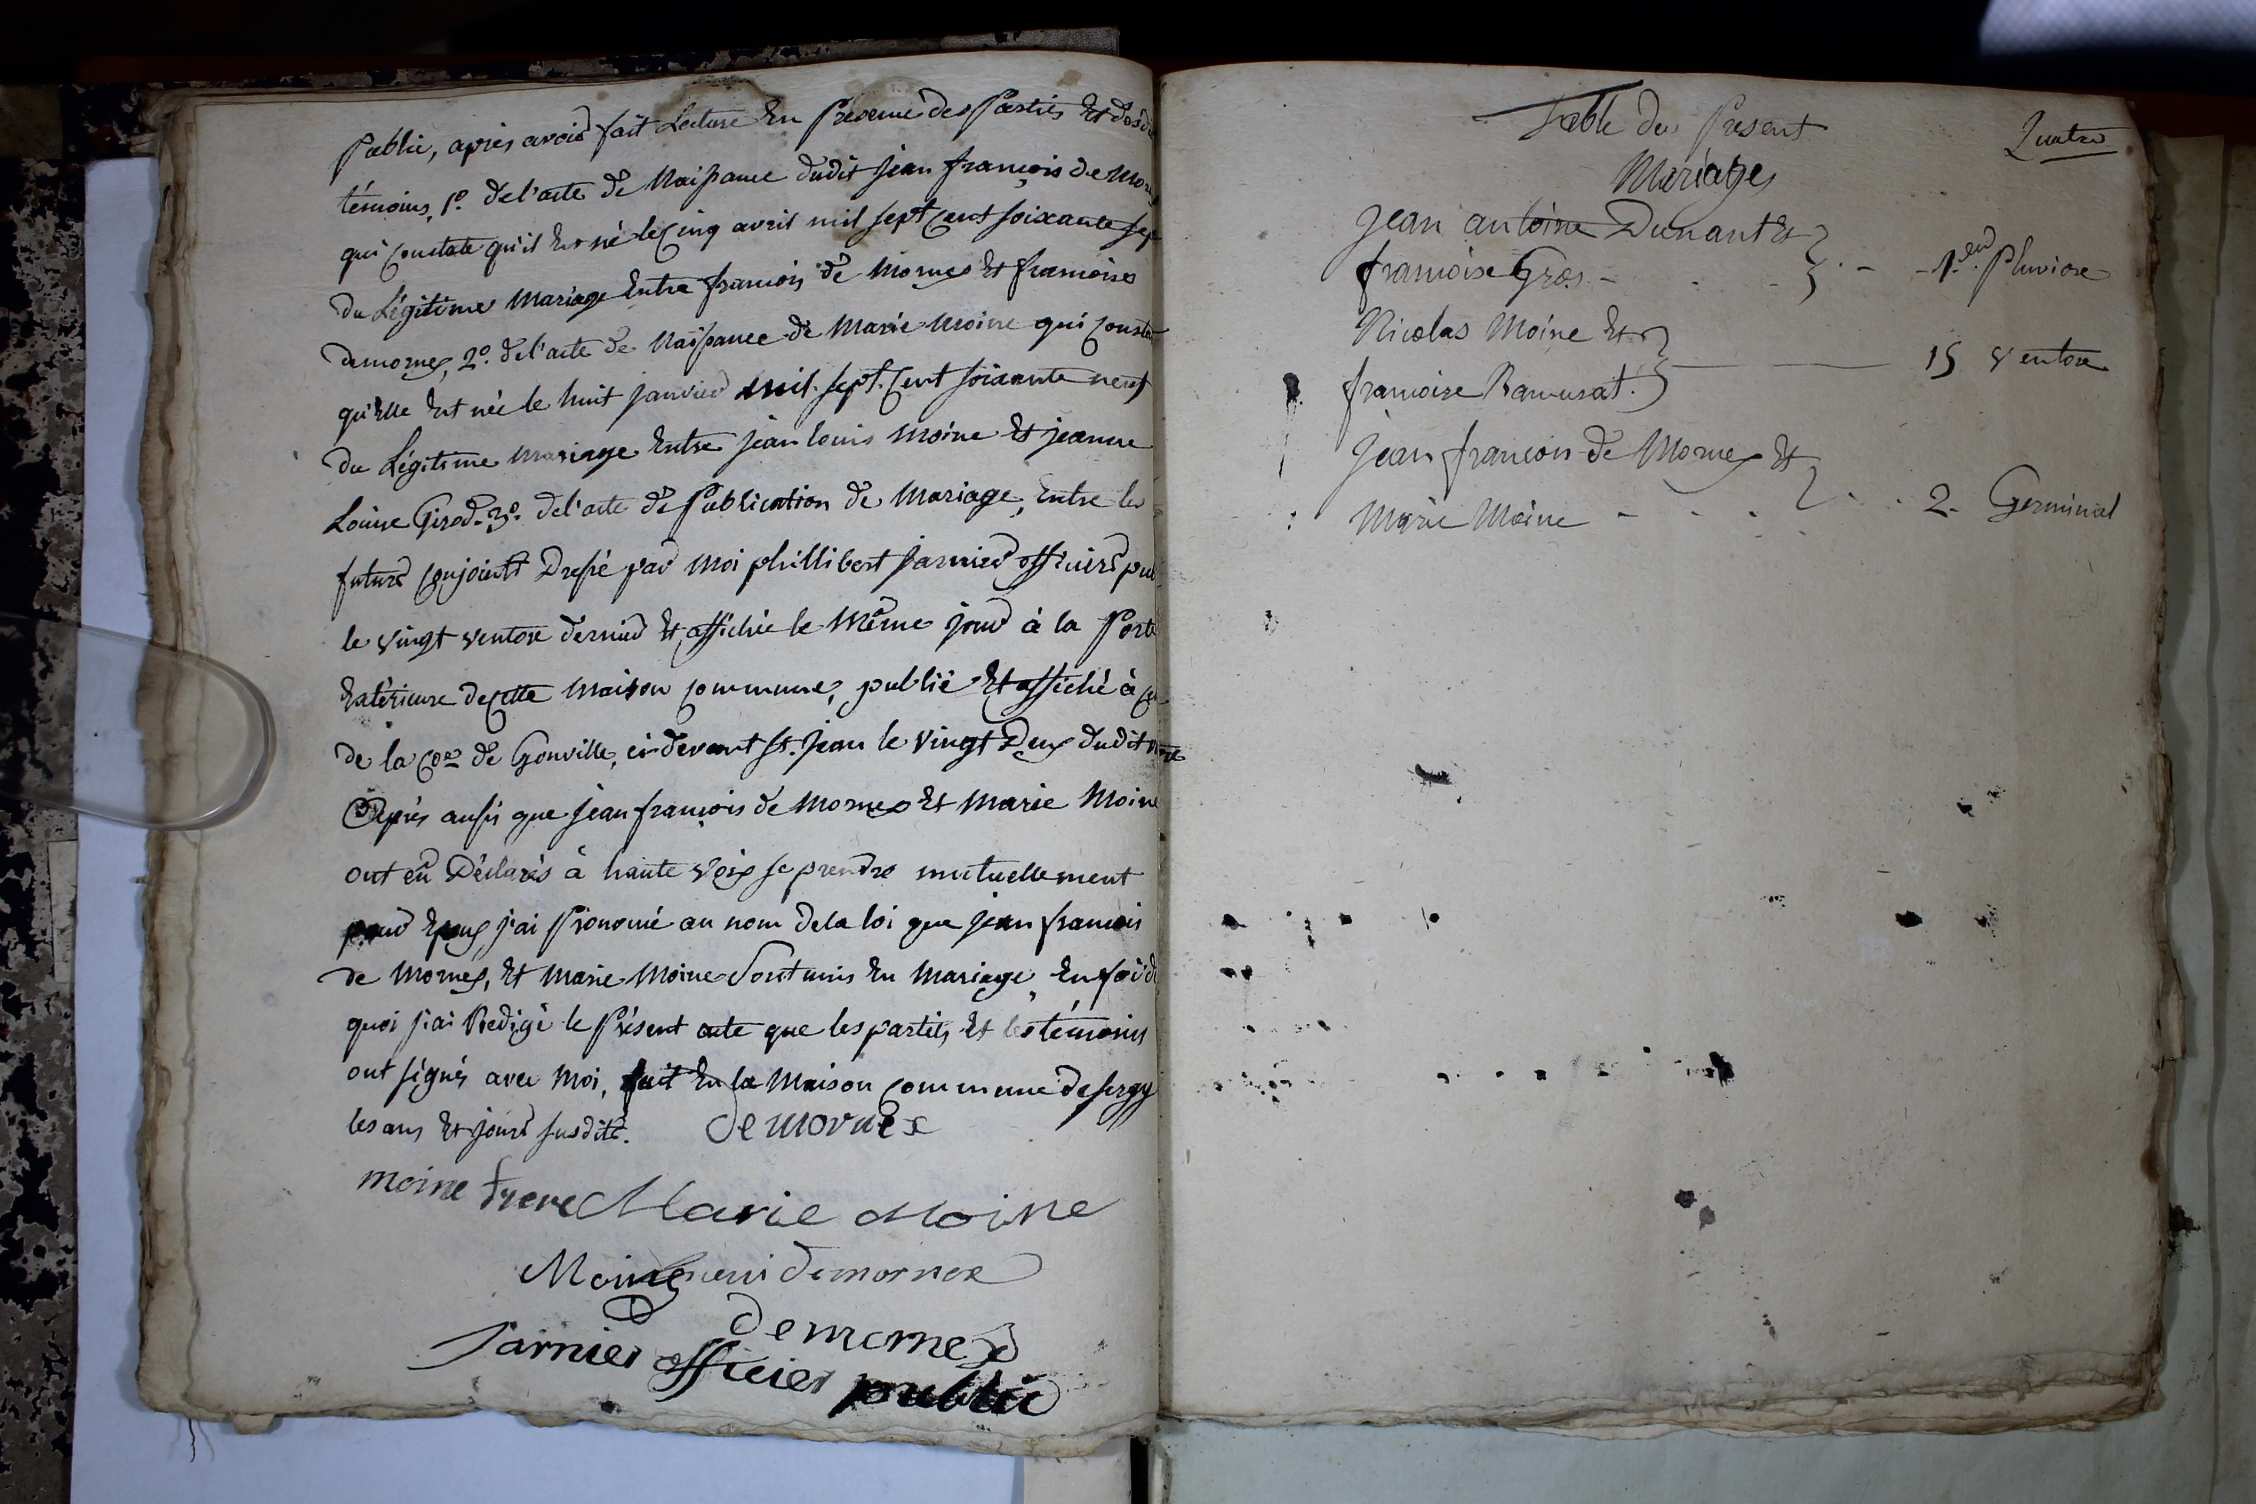 Public, après avoir fait Lecture En Presence des Parties Et desd
témoins, 1º. de l'acte de Naissance dudit jean françois de Mor
qui Constate qu'il Est né le Cinq avril mil sept Cent soixante sep
du Légitime Mariage Entre françois de Mornex Et françoise
demornex, 2º. de l'acte de Naissance de Marie Moine qui Consta
qu'Elle Est née le huit janvier mil sept Cent soixante neuf
du Légitime Mariage Entre jean louis Moine Et jeanne
Louise Girod. 3º. de l'acte de Publication de Mariage, Entre les
futurs Conjoints Dressé par Moi phillibert Jarnier officiers pub
le vingt ventose dernier Et affichée le Même jour à la Porte
Extérieure de Cette Maison Commune, publié Et affiché à
de la Cne de Gonville, ci-devant St. Jean le vingt Deux dudit
Après aussi que jean françois de Mornex Et Marie Moine
ont eû Déclarés à haute voix se prendre mutuellement
pour Epoux j'ai Prononcé au nom de la loi que jean francois
de Mornex, Et Marie Moine Sont unis En Mariage, En foi d
quoi j'ai Redigé le Présent acte que les parties Et les témoins
ont signés avec Moi, fait En la Maison Commune de sergy
les ans Et jours susdits. demornex
moine frere Marie Moine
Moine demornex
demornex
Jarnier officier public
Table du Present
Quatre
Mariages
Jean antoine Dunant Et
francoise Gros - 1.er Pluviose
Nicolas Moine Et
francoise Ramusat. 15 Ventose
Jean francois de Mornex Et
Marie Moine - 2. Germinal